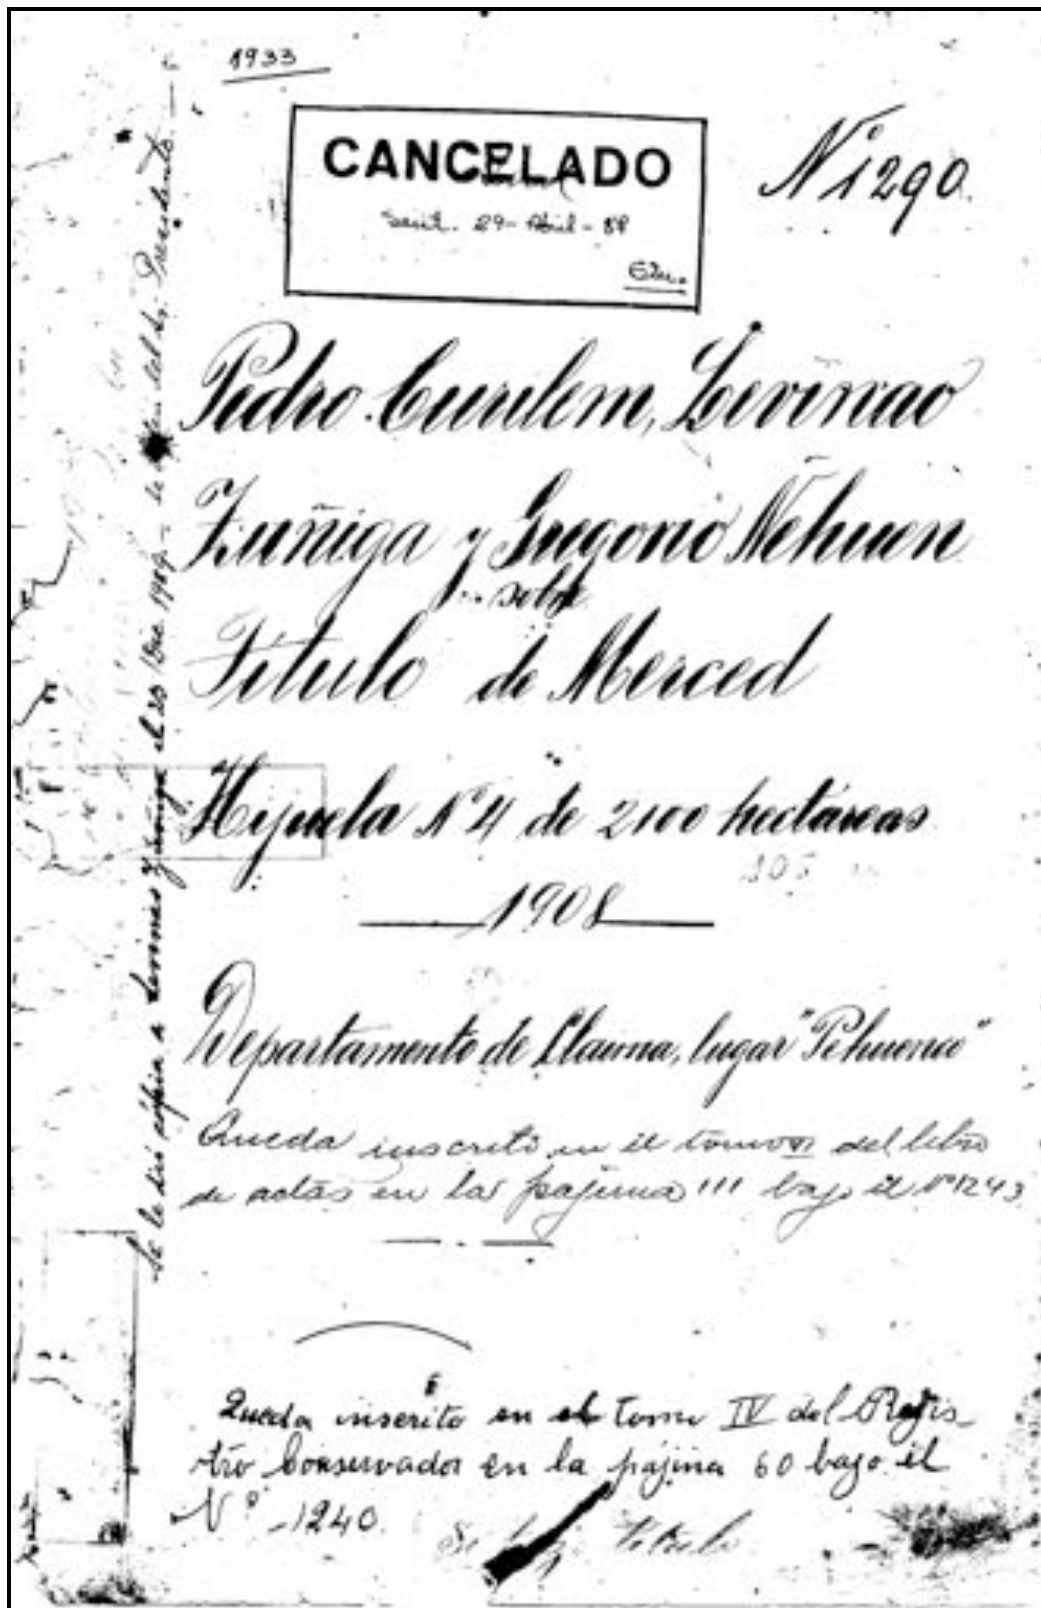 1933
CANCELADO
Sant. 29 - Abril - 88
N° 1290.
Pedro Curilem, Levinao
Zuñiga y Gregorio Nehuen
sobre
Título de Merced
Hijuela N° 4 de 2100 hectáreas
105
1908
Departamento de Llaima, lugar "Pehuenco"
Queda inscrito en el tomo VI del libro
de actas en la pajina 111 bajo el N° 1243
Queda inscrito en el tomo IV del Regis-
tro Conservador en la pájina 60 bajo el
N° 1240.
titulo
Se le dió cópia a Levinao Zuñiga el 20 Dbre 1909 - de del Sr. Presidente.